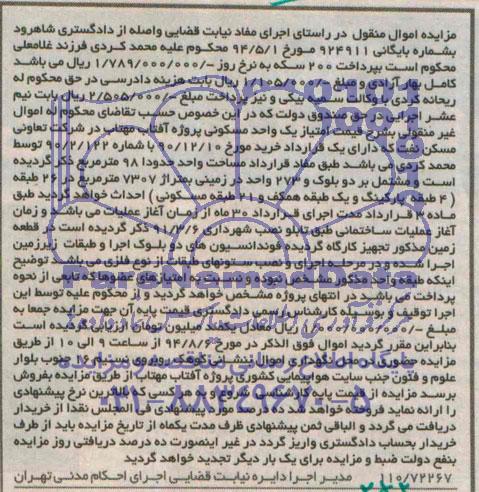 مزایده اموال منقول در راستای اجرای مفاد نیابت قضایی واصله از دادگستری شاهرود
بشماره بایگانی ۹۲۴۹۱۱ مورخ ۹۴/۵/۱ محکوم علیه محمد کردی فرزند غلامعلی
محکوم است بپرداخت ۲۰۰ سکه به نرخ روز -/۱/۷۸۹/۰۰۰/۰۰۰ ریال می باشد
کامل بهار آزادی و مبلغ -/۱/۱۰۵/۰۰۰ ریال بابت هزینه دادرسی در حق محکوم له
ریحانه کردی با وکالت سمیه بیکی و نیز پرداخت مبلغ -/۲/۵۰۵/۰۰۰ ریال بابت نیم
عشر اجرایی در حق صندوق دولت که در این خصوص حسب تقاضای محکوم له اموال
غیر منقولی بشرح قیمت امتیاز یک واحد مسکونی پروژه آفتاب مهتاب در شرکت تعاونی
مسکن نفت که دارای یک قرارداد خرید مورخ ۹۰/۱۲/۱۰ با شماره ۹۰/۲/۱۲۲ توسط
محمد کردی می باشد طبق مفاد قرارداد مساحت واحد حدودا ۹۸ مترمربع ذکر گردیده
است و مشتمل بر دو بلوک و ۲۷۳ واحد در زمینی بمتراژ ۷۳۰۷ مترمربع در ۲۶ طبقه
( ۴ طبقه پارکینگ و یک طبقه همکف و ۲۱ طبقه مسکونی ) احداث خواهد گردید طبق
ماده ۳ قرارداد مدت اجرای قرارداد ۳۰ ماه از زمان آغاز عملیات می باشد و زمان
آغاز عملیات ساختمانی طبق تابلو نصب شهرداری ۹۱/۳/۶ ذکر گردیده است در قطعه
زمین مذکور تجهیز کارگاه گردیده و فوندانسیون های دو بلوک اجرا و طبقات زیرزمین
اجرا شده و در مرحله اجرای و نصب ستونهای طبقات از نوع فلزی می باشد توضیح
اینکه طبقه واحد مذکور مشخص نبوده و نسبت به امتیازهای عضوها که تابعی از نحوه
پرداخت می باشد در انتهای پروژه مشخص خواهد گردید و از محکوم علیه توسط این
اجرا توقیف و بوسیله کارشناس رسمی دادگستری قیمت پایه آن جهت مزایده جمعا به
مبلغ ریال معادل یکصد میلیون تومان ارزیابی گردیده است
بنابراین مقرر گردید اموال فوق الذکر در مورخ ۹۴/۸/۶ از ساعت ۹ الی ۱۰ از طریق
مزایده حضوری در محل نگهداری اموال بنشانی کوهک روبروی نسیم ۱۶ جنوب بلوار
علوم و فنون جنب سایت هواپیمایی کشوری پروژه آفتاب مهتاب از طریق مزایده بفروش
برسد مزایده از قیمت پایه کارشناسی شروع و به هر کسی که بالاترین نرخ پیشنهادی
را ارائه نماید فروخته خواهد شد ده درصد مورد پیشنهادی فی المجلس نقدا از خریدار
دریافت می گردد و الباقی ثمن پیشنهادی ظرف مدت یکماه از تاریخ مزایده باید از طرف
خریدار بحساب دادگستری واریز گردد در غیر اینصورت ده درصد دریافتی روز مزایده
بنفع دولت ضبط و مزایده برای یک بار دیگر تجدید خواهد گردید
۱۱۰/۷۲۲۶۷ مدیر اجرا دایره نیابت قضایی اجرای احکام مدنی تهران